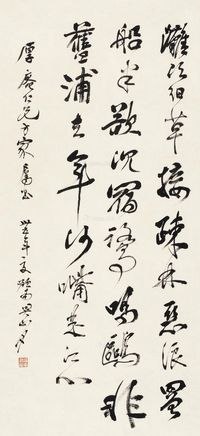 灘頭細草接疎林惡浪罾
船半欲沉宿鷺眠鷗非
舊浦去年沙嘴是江心
厚庵仁兄方家屬書 卅五年夏